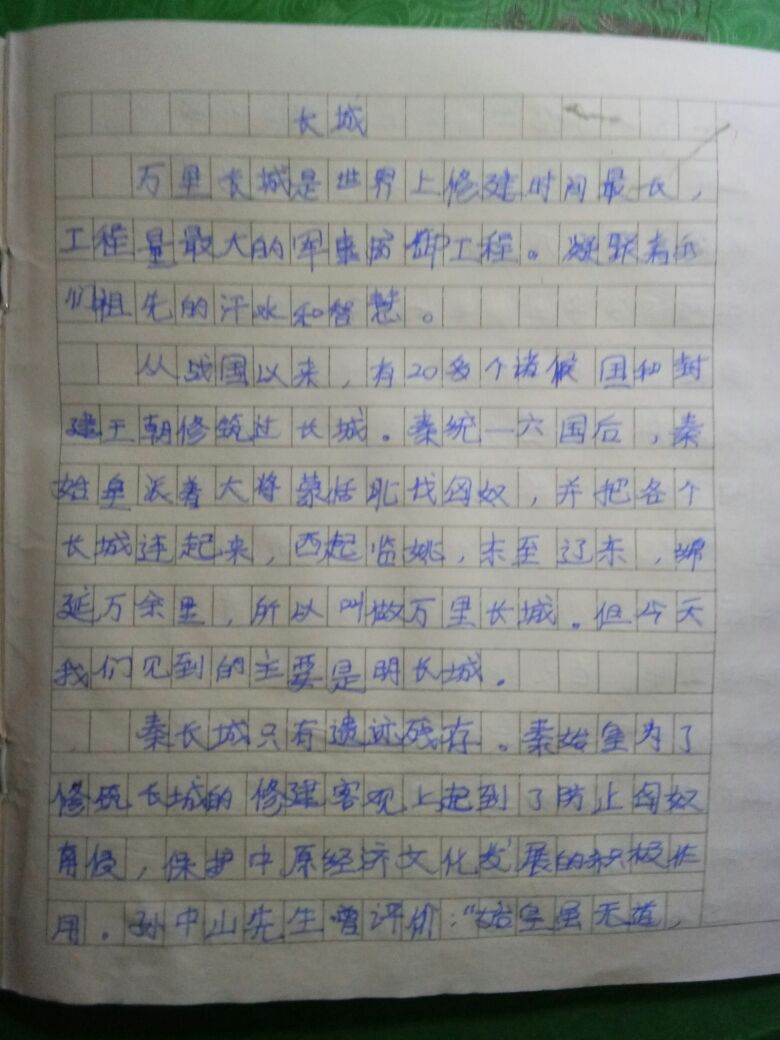 长城
万里长城是世界上修建时间最长，
工程量最大的军事防御工程。凝聚着我
们祖先的汗水和智慧。
从战国以来，有20多个诸候国和封
建王朝修筑过长城。秦统一六国后，秦
始皇派着大将蒙恬北找匈奴，并把各个
长城连起来，西起监姚，东至辽东，绵
延万余里，所以叫做万里长城。但今天
我们见到的主要是明长城。
秦长城只有遗迹残存。秦始皇为了
修筑长城的修建客观上起到了防止匈奴
南侵，保护中原经济文化发展的积极作
用。孙中山先生曾评价："始皇虽无道，